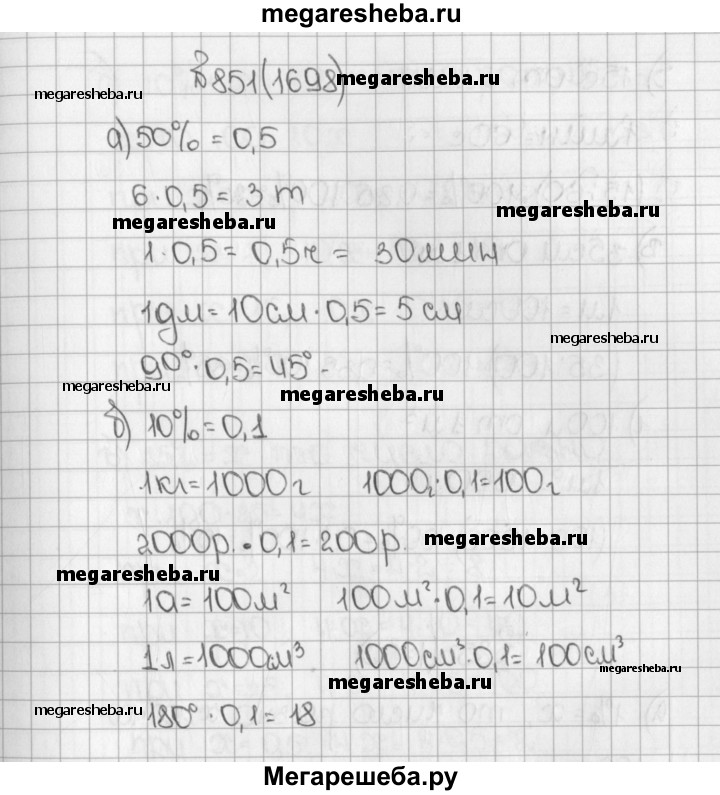 megaresheba.ru
№851(1698) megaresheba.ru
megaresheba.ru
а) 50% = 0,5
6·0,5 = 3 т
megaresheba.ru megaresheba.ru
1·0,5 = 0,5ч = 30мин
1дм = 10см·0,5 = 5 см
megaresheba.ru
90°·0,5 = 45°
megaresheba.ru megaresheba.ru
б) 10% = 0,1
1кг = 1000г 1000г·0,1 = 100г
2000р.·0,1 = 200р. megaresheba.ru
megaresheba.ru
1а = 100м² 100м²·0,1 = 10м²
1л = 1000см³ 1000см³·0,1 = 100см³
megaresheba.ru
megaresheba.ru
megaresheba.ru
180°·0,1 = 18
Мегарешеба.ру